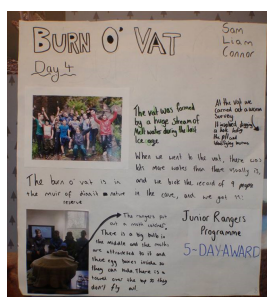 BURN O' VAT
Sam
Liam
Connor
Day 4
The vat was formed
by a huge stream of
Melt water during the last
Ice age.
At the vat we
carried out a
Survey
When we went to the vat, there was
lots more water than there usually is,
and we broke the record of 9 people
in the cave, and we got 11.
The burn o' vat is in
the muir of dinnit nature
reserve
The rangers put
out a moth
There is a big bulb in
the middle and the moths
are attracted to it and
there egg boxes inside so
they can hide. There is a
towel over the top so they
don't fly out.
Junior Rangers
Programme
5-DAY-AWARD